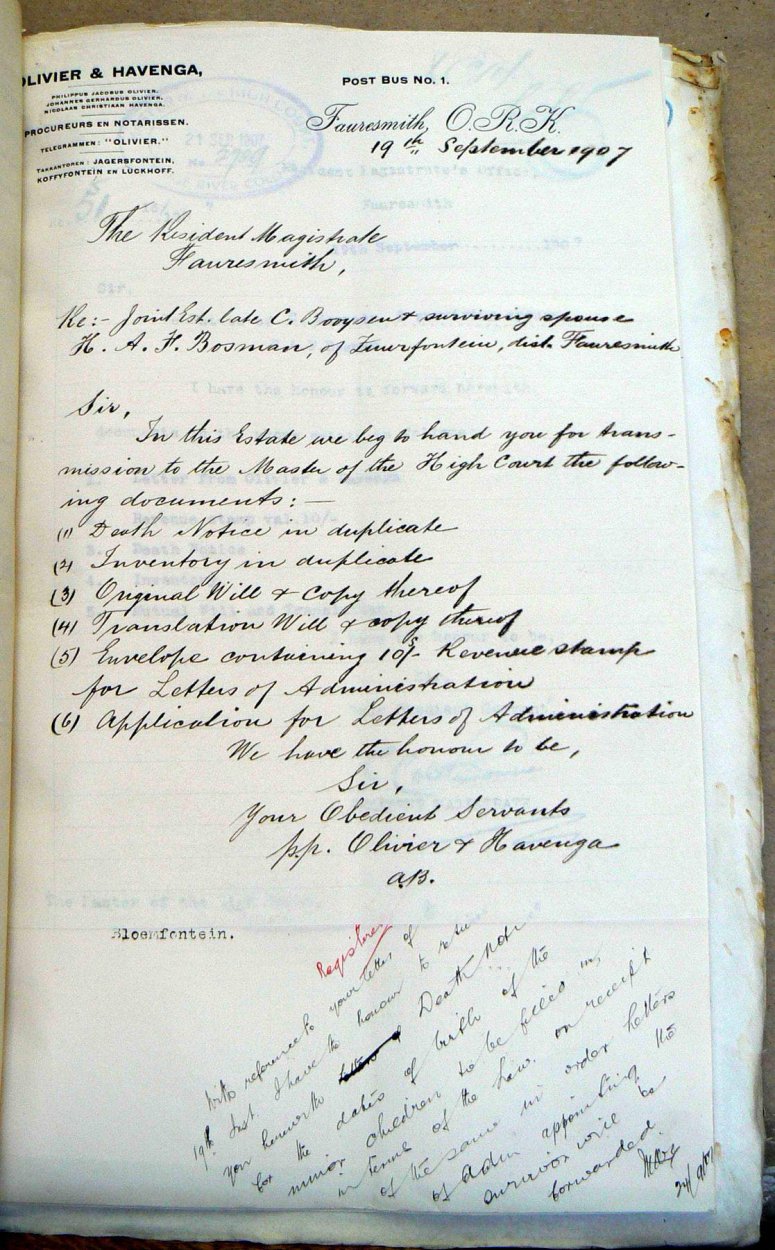 OLIVIER & HAVENGA,
PHILIPPUS JACOBUS OLIVIER.
JOHANNES GERHARDUS OLIVIER.
NICOLAAS CHRISTIAAN HAVENGA.
PROCUREURS EN NOTARISSEN.
TELEGRAMMEN: "OLIVIER."
TAKKANTOREN: JAGERSFONTEIN,
KOFFYFONTEIN EN LUCKHOFF.
POST BUS NO. 1.
Fauresmith, O.R.K.
19th September 1907
21 SEP 1907
The Resident Magistrate
Fauresmith,
Re:- Joint Est. late C. Booysen & surviving spouse
H. A. F. Bosman, of Zuurfontein, dist. Fauresmith
Sir,
In this Estate we beg to hand you for trans-
mission to the Master of the High Court the follow-
ing documents: —
(1) Death Notice in duplicate
(2) Inventory in duplicate
(3) Original Will & copy thereof
(4) Translation Will & copy thereof
(5) Envelope containing 10s/- Revenue stamp
for Letters of Administration
(6) Application for Letters of Administration
We have the honour to be,
Sir,
Your Obedient Servants
p.p. Olivier & Havenga
a.B.
Bloemfontein.
Registered
With reference to your letter of
19th Inst. I have the honour to return
you herewith Death Notice
for the dates of birth of the
minor children to be filled in,
in terms of the Law. on receipt
of the same in order letters
of Adm. appointing the
survivor will be
forwarded.
24/9/07